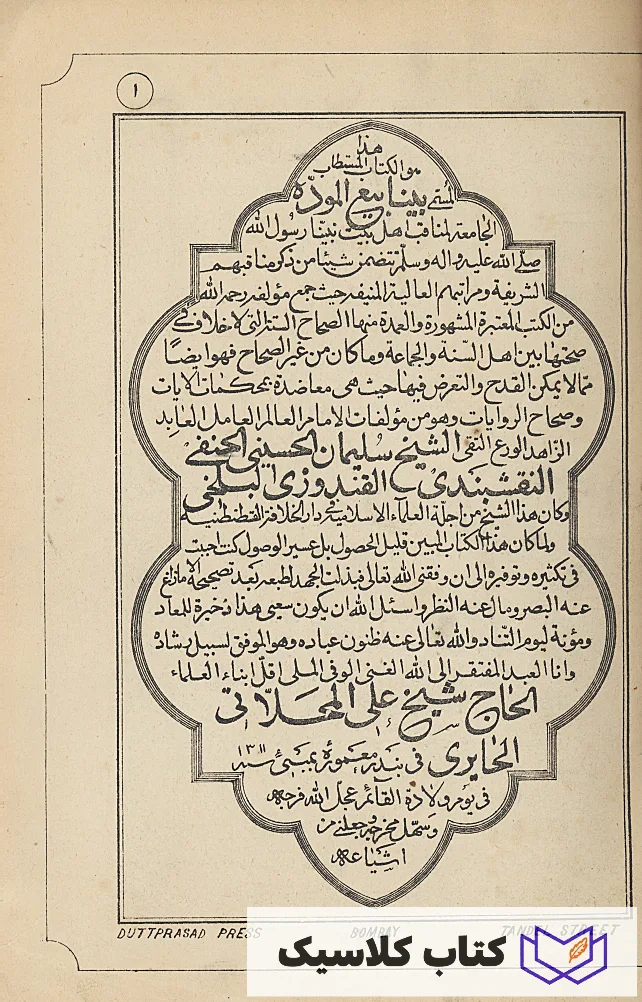 ١
هذا
هو الكتاب المستطاب
المسمّى بينابيع المودّة
الجامعة لمناقب اهل بيت نبيّنا رسول الله
صلّى الله عليه واله وسلّم تتضمن شيئا من ذكر مناقبهم
الشريفة ومراتبهم العالية المنيفة حيث جمع مؤلفه رحمه الله
من الكتب المعتبرة المشهورة والعمدة منها الصحاح الستة التى لا خلاف فى
صحتها بين اهل السنة والجماعة وما كان من غير الصحاح فهو ايضًا
ممّا لا يمكن القدح والتعرض فيها حيث هى معاضدة بمحكمات الايات
وصحاح الروايات وهو من مؤلفات الامام العالم العامل العابد
الزاهد الورع التقى الشيخ سليمان الحسينى الحنفى
النقشبندى القندوزى البلخى
وكان هذا الشيخ من اجلّة العلماء الاسلامية فى دار الخلافة القسطنطنية
ولما كان هذا الكتاب المبين قليل الحصول بل عسير الوصول كنت احببت
فى تكثيره وتوفيره الى ان وفقنى الله تعالى فبذلت الجهد لطبعه بعد تصحيحه الا ما زاغ
عنه البصر ومال عنه النظر واسئل الله ان يكون سعيى هذا ذخيرة للمعاد
ومؤنة ليوم التناد والله تعالى عند ظنون عباده وهو الموفق لسبيل رشاده
وانا العبد المفتقر الى الله الغنى الوفى الملى اقلّ ابناء العلماء
الحاج شيخ على المحلاتى
الحايرى فى بندر معمورۀ بمبئى سنه ١٣١١
فى يوم ولادة القائم عجل الله فرجه
وسهّل مخرجه وجعلنى من
اشياعه
DUTTPRASAD PRESS BOMBAY TANDEL STREET
کتاب کلاسیک